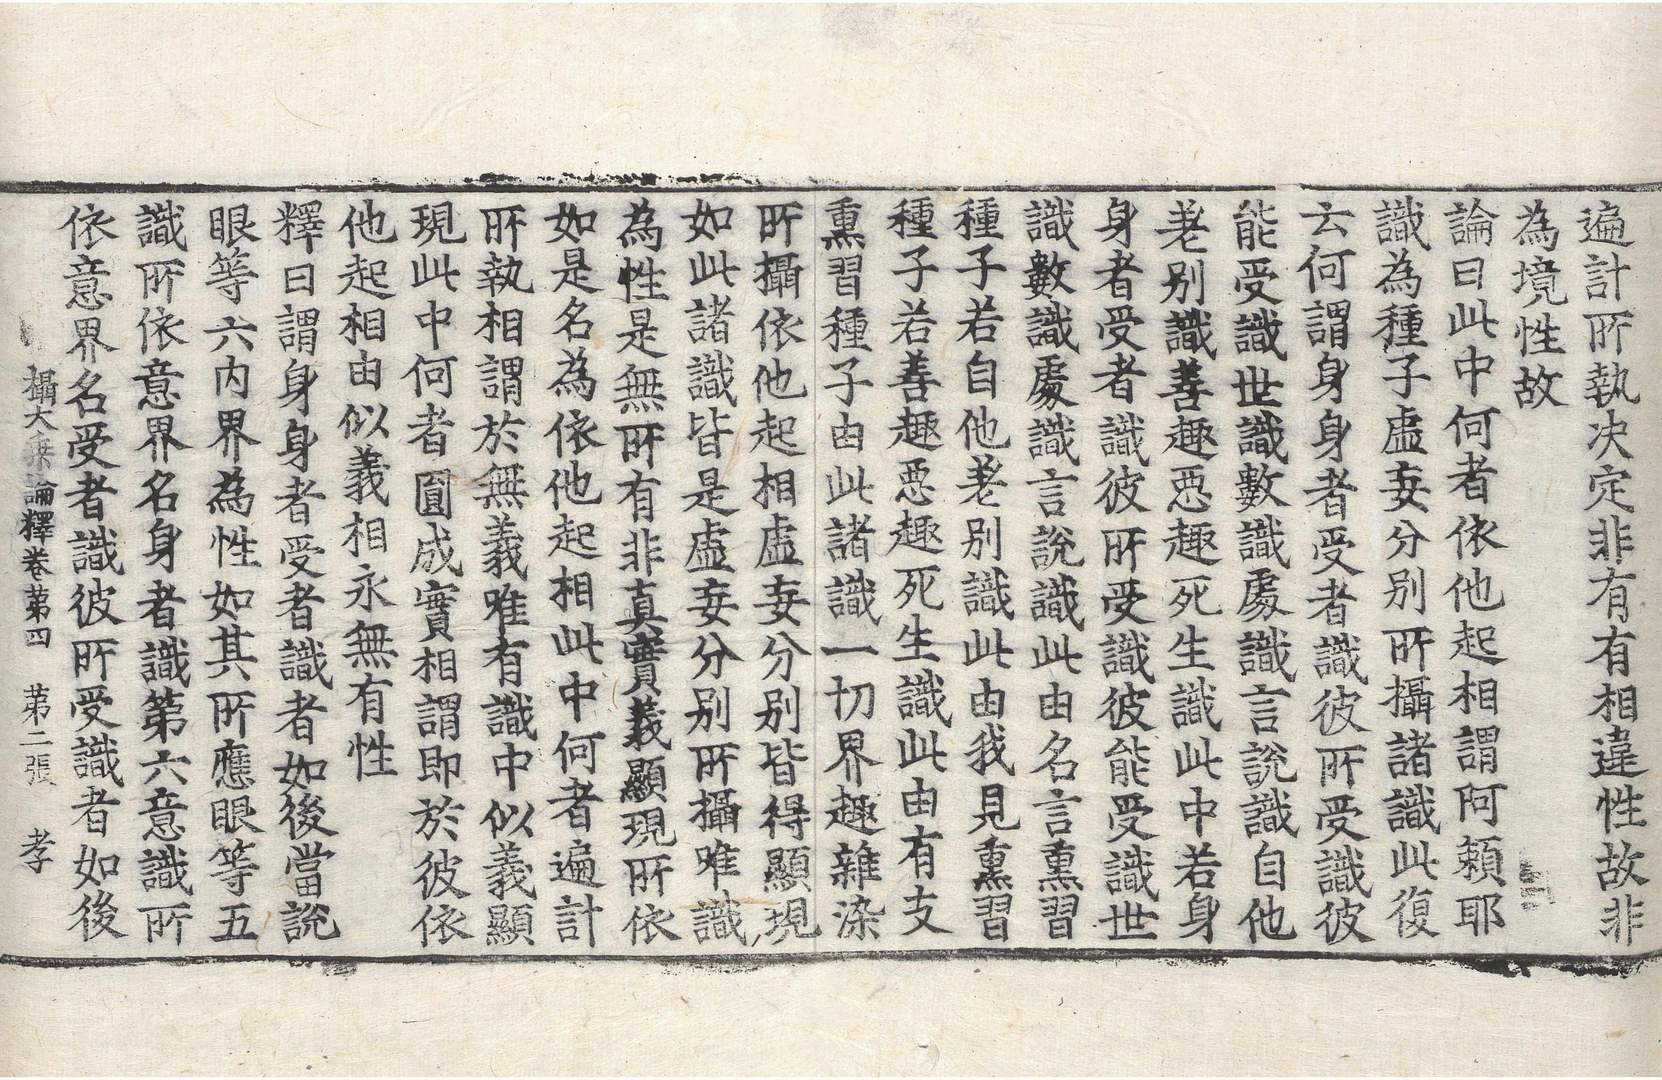 遍計所執決定非有有相違性故非
為境性故
論曰此中何者依他起相謂阿頼耶
識為種子虛妄分別所攝諸識此復
云何謂身身者受者識彼所受識彼
能受識世識數識處識言說識自他
差別識善趣惡趣死生識此中若身
身者受者識彼所受識彼能受識世
識數識處識言說識此由名言熏習
種子若自他差別識此由我見熏習
種子若善趣惡趣死生識此由有支
熏習種子由此諸識一切界趣雜染
所攝依他起相虛妄分別皆得顯現
如此諸識皆是虛妄分別所攝唯識
為性是無所有非真實義顯現所依
如是名為依他起相此中何者遍計
所執相謂於無義唯有識中似義顯
現此中何者圓成實相謂即於彼依
他起相由似義相永無有性
釋曰謂身身者受者識者如後當說
眼等六內界為性如其所應眼等五
識所依意界名身者識第六意識所
依意界名受者識彼所受識者如後
攝大乘論釋卷第四 第二張 孝